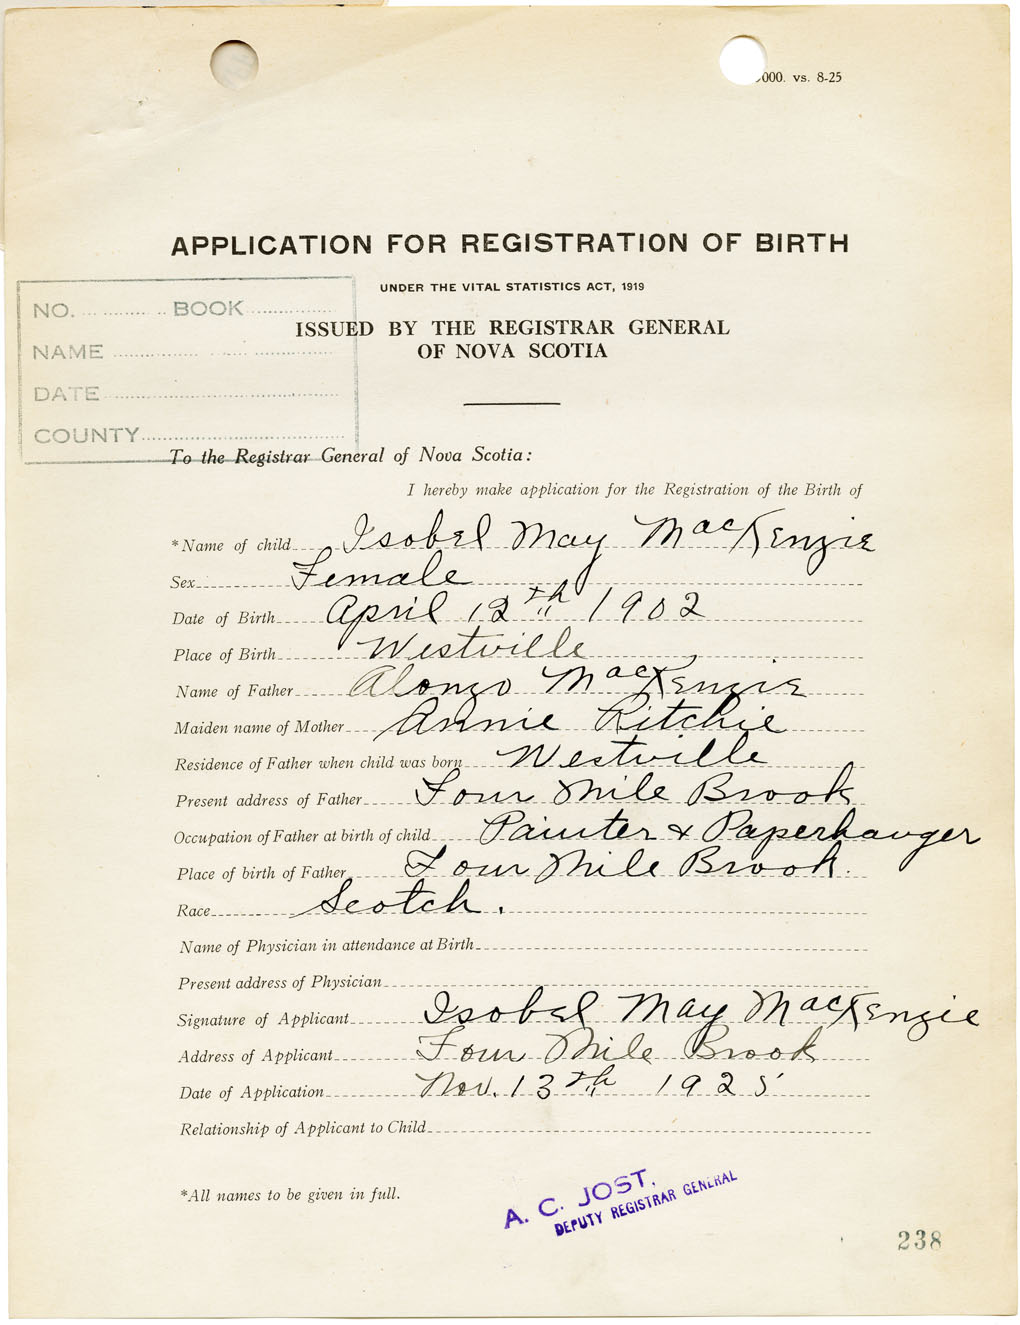 000. vs. 8-25
APPLICATION FOR REGISTRATION OF BIRTH
UNDER THE VITAL STATISTICS ACT, 1919
ISSUED BY THE REGISTRAR GENERAL
OF NOVA SCOTIA
NO. BOOK
NAME
DATE
COUNTY
To the Registrar General of Nova Scotia:
I hereby make application for the Registration of the Birth of
*Name of child Isobel May MacKenzie
Sex Female
Date of Birth April 12th 1902
Place of Birth Westville
Name of Father Alonzo MacKenzie
Maiden name of Mother Annie Ritchie
Residence of Father when child was born Westville
Present address of Father Four Mile Brook
Occupation of Father at birth of child Painter & Paperhanger
Place of birth of Father Four Mile Brook.
Race Scotch.
Name of Physician in attendance at Birth
Present address of Physician
Signature of Applicant Isobel May MacKenzie
Address of Applicant Four Mile Brook
Date of Application Nov. 13th 1925
Relationship of Applicant to Child
*All names to be given in full.
A. C. JOST,
DEPUTY REGISTRAR GENERAL
238